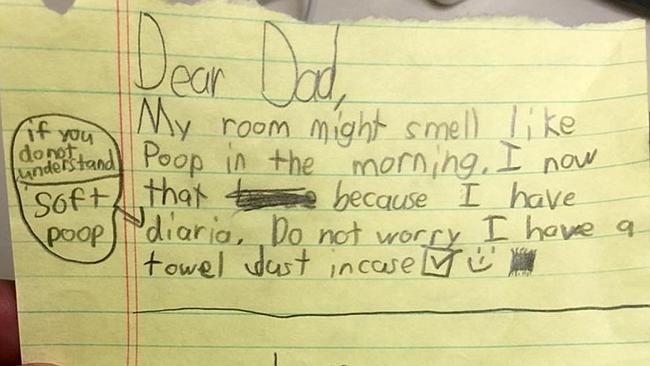 Dear Dad,
My room might smell like
Poop in the morning. I now
that because I have
diaria. Do not worry I have a
towel Just incase
if you
do not
understand
soft
poop